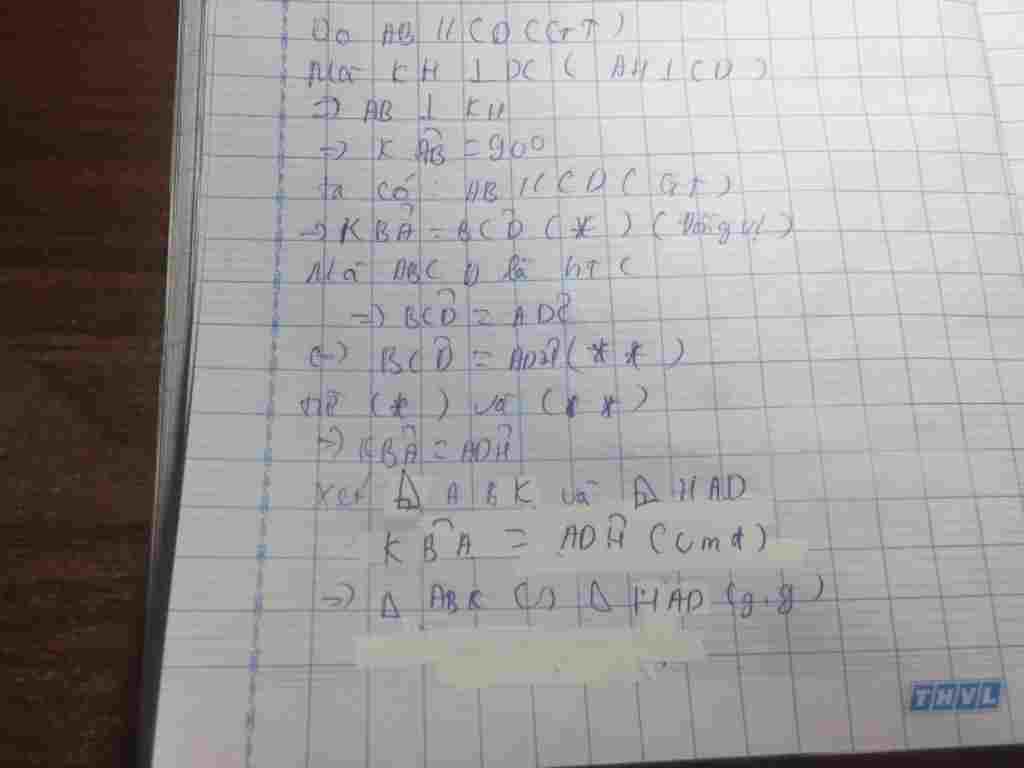 Do AB // CD (GT)
Mà KH ⊥ DC ( AH ⊥ CD )
=> AB ⊥ KH
=> KÂB = 90°
Ta có : AB // CD ( GT )
=> KB̂A = BĈD (*) ( Đồng vị )
Mà ABCD là hTC
=> BĈD = AD̂C
<=> BĈD = AD̂H (* *)
Từ (*) và (* *)
=> KB̂A = AD̂H
Xét Δ ABK và Δ HAD
KB̂A = AD̂H (cmt)
=> Δ ABK ∽ Δ HAD (g.g)
THVL